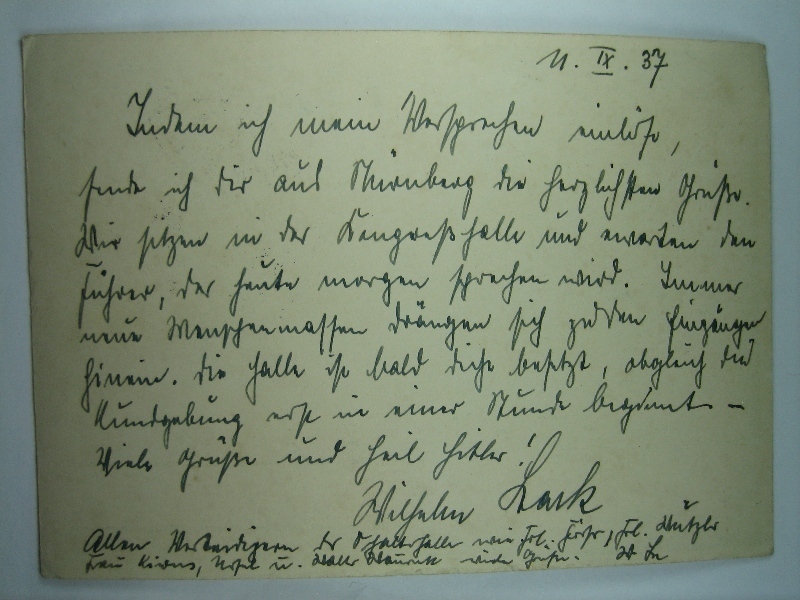 11. IX. 37
Indem ich mein Versprechen einlöse,
sende ich dir aus Nürnberg die herzlichsten Grüße.
Wir sitzen in der Kongreßhalle und erwarten den
Führer, der heute morgen sprechen wird. Immer
neue Menschenmassen drängen sich zu den Eingängen
hinein. Die Halle ist bald dicht besetzt, obgleich die
Kundgebung erst in einer Stunde beginnt. –
Viele Grüße und Heil Hitler!
Wilhelm
Allen Verteidigern der wie Frl. Frl.
Frau u. viele Grüße.